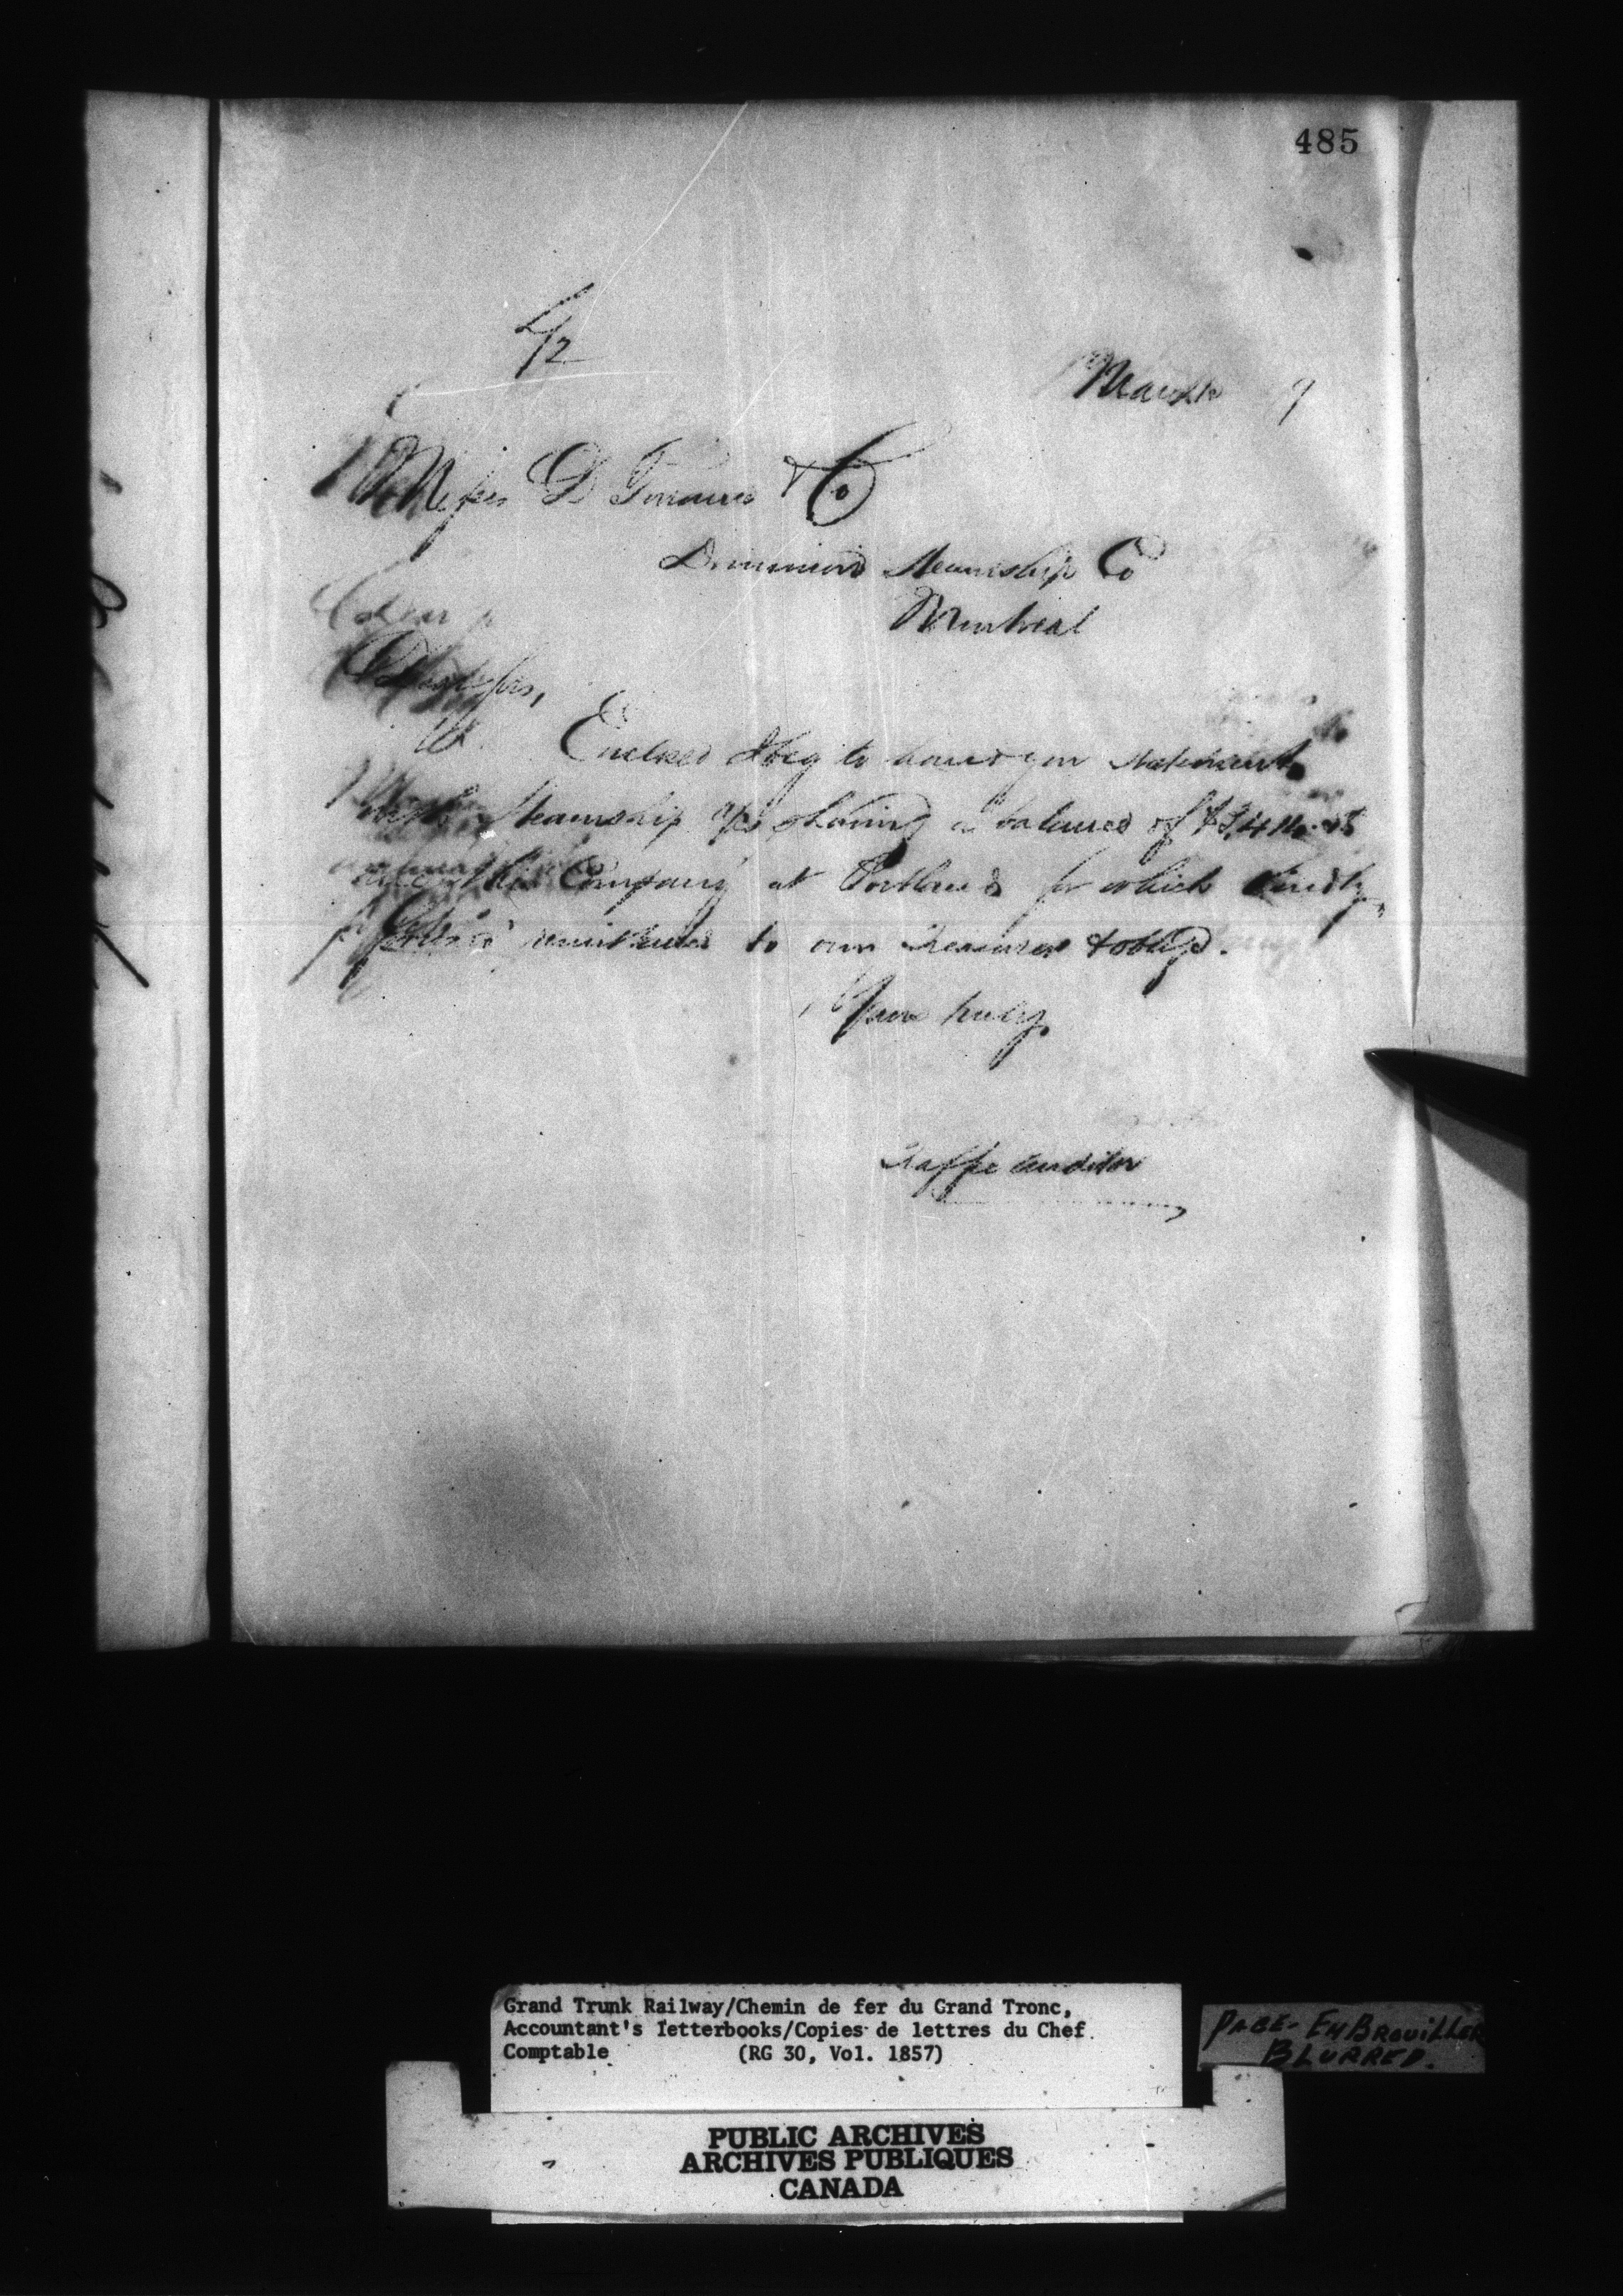 485
L/2
March 9
Messrs D Torrance & Co
Dominion Steamship Co
Montreal
Dear Sirs,
Enclosed I beg to hand you Statement
Steamship a/c showing a balance of
this Company at Portland for which kindly
remittance to our Treasurer & oblige.
Yours truly,
Traffic Auditor
Grand Trunk Railway/Chemin de fer du Grand Tronc,
Accountant's letterbooks/Copies de lettres du Chef
Comptable (RG 30, Vol. 1857)
PAGE-EMBROUILLER
BLURRED.
PUBLIC ARCHIVES
ARCHIVES PUBLIQUES
CANADA